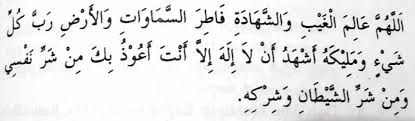 اَللَّهُمَّ عَالِمَ الْغَيْبِ وَالشَّهَادَةِ فَاطِرَ السَّمَاوَاتِ وَالْأَرْضِ رَبَّ كُلِّ
شَيْءٍ وَمَلِيْكَهُ أَشْهَدُ أَنْ لاَ إِلَهَ إِلاَّ أَنْتَ أَعُوْذُ بِكَ مِنْ شَرِّ نَفْسِيْ
وَمِنْ شَرِّ الشَّيْطَانِ وَشِرْكِهِ.